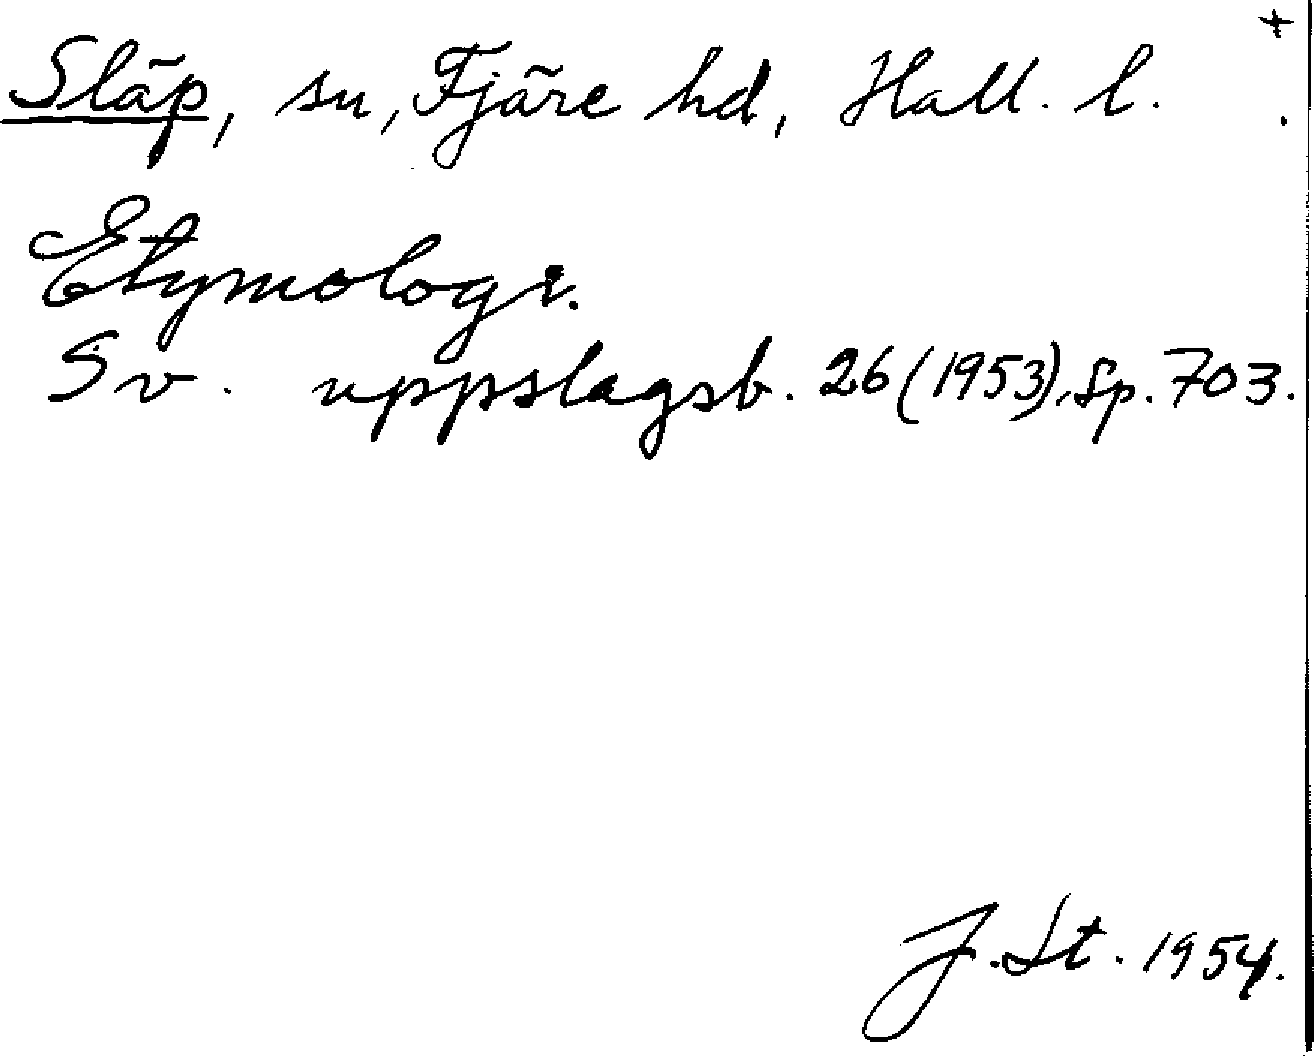 +
Släp, sn, Fjäre hd, Hall. l.
Etymologi.
Sv. uppslagsb. 26 (1953), sp. 703.
J. St. 1954.